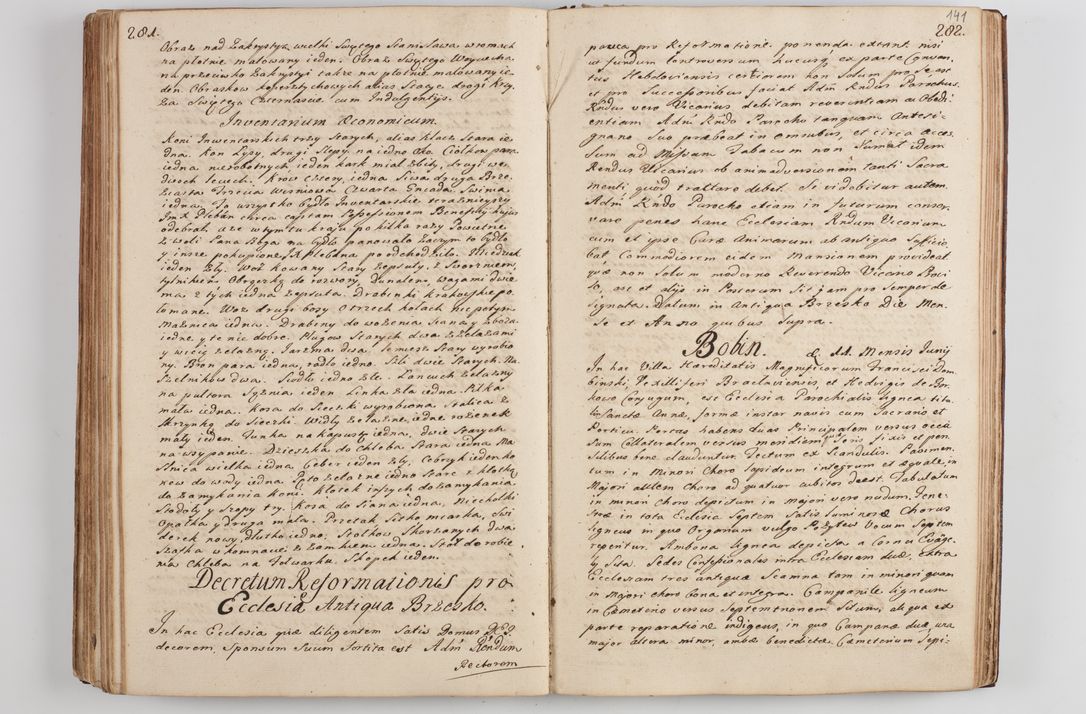 281.
Obraz nad Zakrystyą wielki Swiętego Stanisława w ramach
na płotnie malowany ieden. Obraz Swiętego Woyciecha
na przeciwko Zakrystyi także na płotnie malowany ie-
den. Obrazkow kopersztychowych alias Stacye drogi Krzy-
ża Swiętego Czternascie cum Indulgentijs.
Inventarium Œconomicum.
Koni Inwentarskich trzy Starych, alias Klacz Stara ie-
dna. Kon Łysy, drugi Slepy na iedno Oko. Ciołkow para
iedna
dwoch leciech. Krow cztery, iedna Siwa druga Brze-
ziasta Trzecia Wisniowa Czwarta Gniada, Swinia
iedna. To wszystko bydło Inwentarskie teraznieyszy
Jmć Pleban circa captam Possessionem Beneficij hujus
odebrał, a ze w tym tu kraju po kilka razy Powietrze
z woli Pana Boga na bydło panowało zaczym to bydło
y insze pokupione Xdz Plebana poodchodziło.
ieden zły. Woz kowany Stary zepsuty, z Sworzniem,
tylnikiem Obręczką do rozwory Dunalem, wagami dwie-
ma z tych iedna zepsuta. Drabinki krakowskie po-
łomane. Woz drugi bosy o trzech kołach
Maznica iedna. Drabiny do wożenia Siana y zboża
iedne y te nie dobre. Pługow Starych dwa z żelazami
y wicią żelazną. Jarzma dwa Lemiesz Stary wyrobio
ny. Bron para iedna, radło iedno. Piły dwie Starych. Na-
szelnikow dwa. Siodło iedno złe. Łancuch żelazny
na pułtora Sążnia ieden Linka zła iedna. Piłka
mała iedna. Kosa do Sieczki wyrobiona Stalica z
Skrzynką do Sieczki. Widły żelazne iedne rożenek
mały ieden. Funka na kapustę iedna, dwie Starych
na wsypanie. Dzieszka do Chleba Stara iedna Ma-
slnica wielka iedna Ceber ieden zły, Cebrzyk ieden ko-
nkow do wody iedna Pęto żelazne iedno Stare z kłotką
do zamykania koni. Kłotek inszych do zamykania
Stodoły y Szopy try. kosa do Siana iedna, Niecholki
Opałka y druga mała. Przetak Sitko miarka, Swi-
derek nowy, dłutko iedno, Stołkow Skorzanych dwa
Szafka w komnacie z Zamkiem iedna. Stoł do robie-
nia Chleba na Folwarku. Skopek ieden.
Decretum Reformationis pro
Ecclesia Antiqua Brzesko.
In hac Ecclesia quæ diligentem Satis Domus DEI
decorem, Sponsum Suum Sortita est Adm̃ Rñdum
Rectorem
141
282.
pauca pro Reformatione ponenda extant nisi
ut fundum controversum hucusq; ex parte Conven-
tus Hebdoviensis certiorem non Solum pro Se ast
et pro Successoribus faciat Adm̃ Rndus Parochus.
Rndus vero Vicarius debitam reverentiam ac Obedi-
entiam Adm̃ Rndo Parocho tanquam Antesi-
gnano Suo præbeat in omnibus, et circa acces-
sum ad Missam Tabacum non Sumat idem
Rendus Vicarius ob animadversionem tanti Sacra
menti quod tractare debet. Si videbitur autem
Adm̃ Rndo Parocho etiam in futurum conser-
vare penes hanc Ecclesiam Rndum Vicarium
cum et ipse Curæ Animarum ab antiquo Sufficie-
bat Commodiorem eidem Mansionem provideat
quæ non Solum moderno Reverendo Vicario Baci-
so, ast et alijs in Posterum Sit jam pro Semper de
signata. Datum in Antiqua Brzesko Die Men-
se et Anno quibus Supra.
Bobin. d. 11. Mensis Junij
In hac Villa Hæreditatis Magnificorum Francisci Dem-
binski, Vexilliferi Braclaviensis, et Hedvigis de Bor-
kowo Conjugum, est Ecclesia Parochialis lignea titu-
li Sanctæ Annæ, formæ instar navis cum Sacrario et
Porticu. Portas habens duas Principalem versus occa-
sum Collateralem versus meridiem quæ Seris fixis et pen-
silibus bene clauduntur. Tectum ex Scandulis. Pavimen-
tum in Minori Choro lapideum integrum et æquale, in
Majori autem Choro ad quatuor cubitos deest. Tabulatum
in minori Choro depictum in majori vero nudum, Fene-
stræ in tota Eclesia Septem Satis luminosæ Chorus
ligneus in quo Organum vulgo Pozytew Vocum Septem
reperitur. Ambona lignea depicta a Cornu Evange-
lij Sita. Sedes Confessionales intra Ecclesiam duæ, extra
Ecclesiam tres antiquæ Scamna tam in minori quam
in Majori choro bona et integra. Campanile ligneum
in Cæmeterio versus Septemtrionem Situm, aliqua ex
parte reparatione indigens, in quo Campanæ duæ, una
major altera minor, ambæ benedictæ. Cæmeterium Sepi-